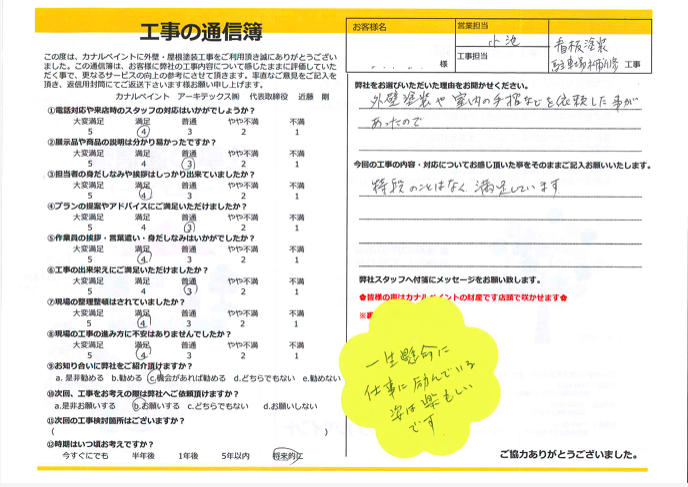 工事の通信簿
この度は、カナルペイントに外壁・屋根塗装工事をご利用頂き誠にありがとうござい
ました。この通信簿は、お客様に弊社の工事内容について感じたままに評価していただ
だく事で、更なるサービスの向上の参考にさせて頂きます。率直なご意見をご記入を
頂き、返信用封筒にてご返送下さいます様お願い申し上げます。
カナルペイント アーキテックス㈱ 代表取締役 近藤 剛
①電話対応や来店時のスタッフの対応はいかがでしょうか?
大変満足 満足 普通 やや不満 不満
5 4 3 2 1
②展示品や商品の説明は分かり易かったですか?
大変満足 満足 普通 やや不満 不満
5 4 3 2 1
③担当者の身だしなみや挨拶はしっかり出来ていましたか?
大変満足 満足 普通 やや不満 不満
5 4 3 2 1
④プランの提案やアドバイスにご満足いただけましたか?
大変満足 満足 普通 やや不満 不満
5 4 3 2 1
⑤作業員の挨拶・言葉遣い・身だしなみはいかがでしたか?
大変満足 満足 普通 やや不満 不満
5 4 3 2 1
⑥工事の出来栄えにご満足いただけましたか?
大変満足 満足 普通 やや不満 不満
5 4 3 2 1
⑦現場の整理整頓はされていましたか?
大変満足 満足 普通 やや不満 不満
5 4 3 2 1
⑧現場の工事の進み方に不安はありませんでしたか?
大変満足 満足 普通 やや不満 不満
5 4 3 2 1
⑨お知り合いに弊社をご紹介頂けますか?
a. 是非勧める b.勧める c.機会があれば勧める d.どちらでもない e.勧めない
⑩次回、工事をお考えの際は弊社へご依頼頂けますか?
a.是非お願いする b.お願いする c.どちらでもない d.お願いしない
⑪次回の工事検討箇所はございますか?
( )
⑫時期はいつ頃お考えですか?
今すぐにでも 半年後 1年後 5年以内 将来的に
お客様名
様
営業担当
小池
工事担当
看板塗装
工事
弊社をお選びいただいた理由をお聞かせください。
外壁塗装や室内の手摺などを依頼した事が
あったので
今回の工事の内容・対応についてお感じ頂いた事をそのままご記入お願いいたします。
特段のことはなく、満足しています
弊社スタッフへ付箋にメッセージをお願い致します。
✿皆様の声はカナルペイントの財産です店頭で咲かせます✿
一生懸命に
仕事に励んでいる
姿は楽もしい
です
ご協力ありがとうございました。